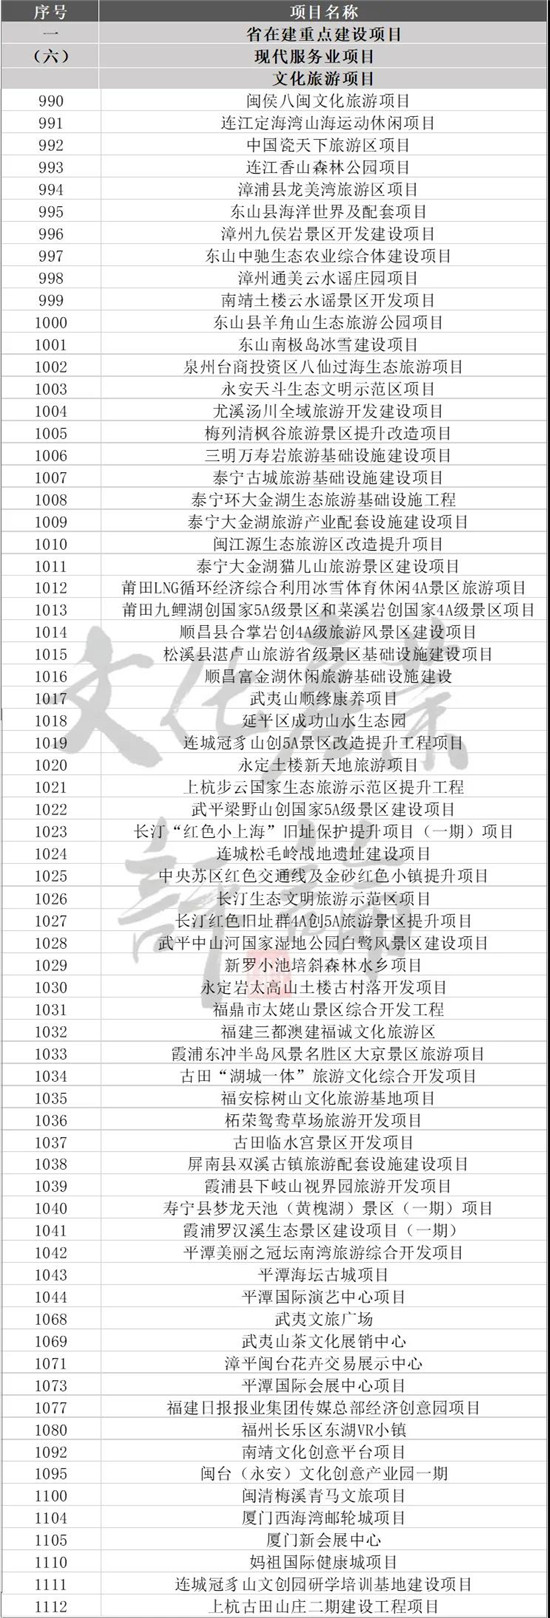 序号 项目名称
一 省在建重点建设项目
（六） 现代服务业项目
文化旅游项目
990 闽侯八闽文化旅游项目
991 连江定海湾山海运动休闲项目
992 中国瓷天下旅游区项目
993 连江香山森林公园项目
994 漳浦县龙美湾旅游区项目
995 东山县海洋世界及配套项目
996 漳州九侯岩景区开发建设项目
997 东山中驰生态农业综合体建设项目
998 漳州通美云水谣庄园项目
999 南靖土楼云水谣景区开发项目
1000 东山县羊角山生态旅游公园项目
1001 东山南极岛冰雪建设项目
1002 泉州台商投资区八仙过海生态旅游项目
1003 永安天斗生态文明示范区项目
1004 尤溪汤川全域旅游开发建设项目
1005 梅列清枫谷旅游景区提升改造项目
1006 三明万寿岩旅游基础设施建设项目
1007 泰宁古城旅游基础设施建设项目
1008 泰宁环大金湖生态旅游基础设施工程
1009 泰宁大金湖旅游产业配套设施建设项目
1010 闽江源生态旅游区改造提升项目
1011 泰宁大金湖猫儿山旅游景区建设项目
1012 莆田LNG循环经济综合利用冰雪体育休闲4A景区旅游项目
1013 莆田九鲤湖创国家5A级景区和菜溪岩创国家4A级景区项目
1014 顺昌县合掌岩创4A级旅游风景区建设项目
1015 松溪县湛卢山旅游省级景区基础设施建设项目
1016 顺昌富金湖休闲旅游基础设施建设
1017 武夷山顺缘康养项目
1018 延平区成功山水生态园
1019 连城冠豸山创5A景区改造提升工程项目
1020 永定土楼新天地旅游项目
1021 上杭步云国家生态旅游示范区提升工程
1022 武平梁野山创国家5A级景区建设项目
1023 长汀“红色小上海”旧址保护提升项目（一期）项目
1024 连城松毛岭战地遗址建设项目
1025 中央苏区红色交通线及金砂红色小镇提升项目
1026 长汀生态文明旅游示范区项目
1027 长汀红色旧址群4A创5A旅游景区提升项目
1028 武平中山河国家湿地公园白鹭风景区建设项目
1029 新罗小池培斜森林水乡项目
1030 永定岩太高山土楼古村落开发项目
1031 福鼎市太姥山景区综合开发工程
1032 福建三都澳建福诚文化旅游区
1033 霞浦东冲半岛风景名胜区大京景区旅游项目
1034 古田“湖城一体”旅游文化综合开发项目
1035 福安棕树山文化旅游基地项目
1036 柘荣鸳鸯草场旅游开发项目
1037 古田临水宫景区开发项目
1038 屏南县双溪古镇旅游配套设施建设项目
1039 霞浦县下岐山视界园旅游开发项目
1040 寿宁县梦龙天池（黄槐湖）景区（一期）项目
1041 霞浦罗汉溪生态景区建设项目（一期）
1042 平潭美丽之冠坛南湾旅游综合开发项目
1043 平潭海坛古城项目
1044 平潭国际演艺中心项目
1068 武夷文旅广场
1069 武夷山茶文化展销中心
1071 漳平闽台花卉交易展示中心
1073 平潭国际会展中心项目
1077 福建日报报业集团传媒总部经济创意园项目
1080 福州长乐区东湖VR小镇
1092 南靖文化创意平台项目
1095 闽台（永安）文化创意产业园一期
1100 闽清梅溪青马文旅项目
1104 厦门西海湾邮轮城项目
1105 厦门新会展中心
1110 妈祖国际健康城项目
1111 连城冠豸山文创园研学培训基地建设项目
1112 上杭古田山庄二期建设工程项目